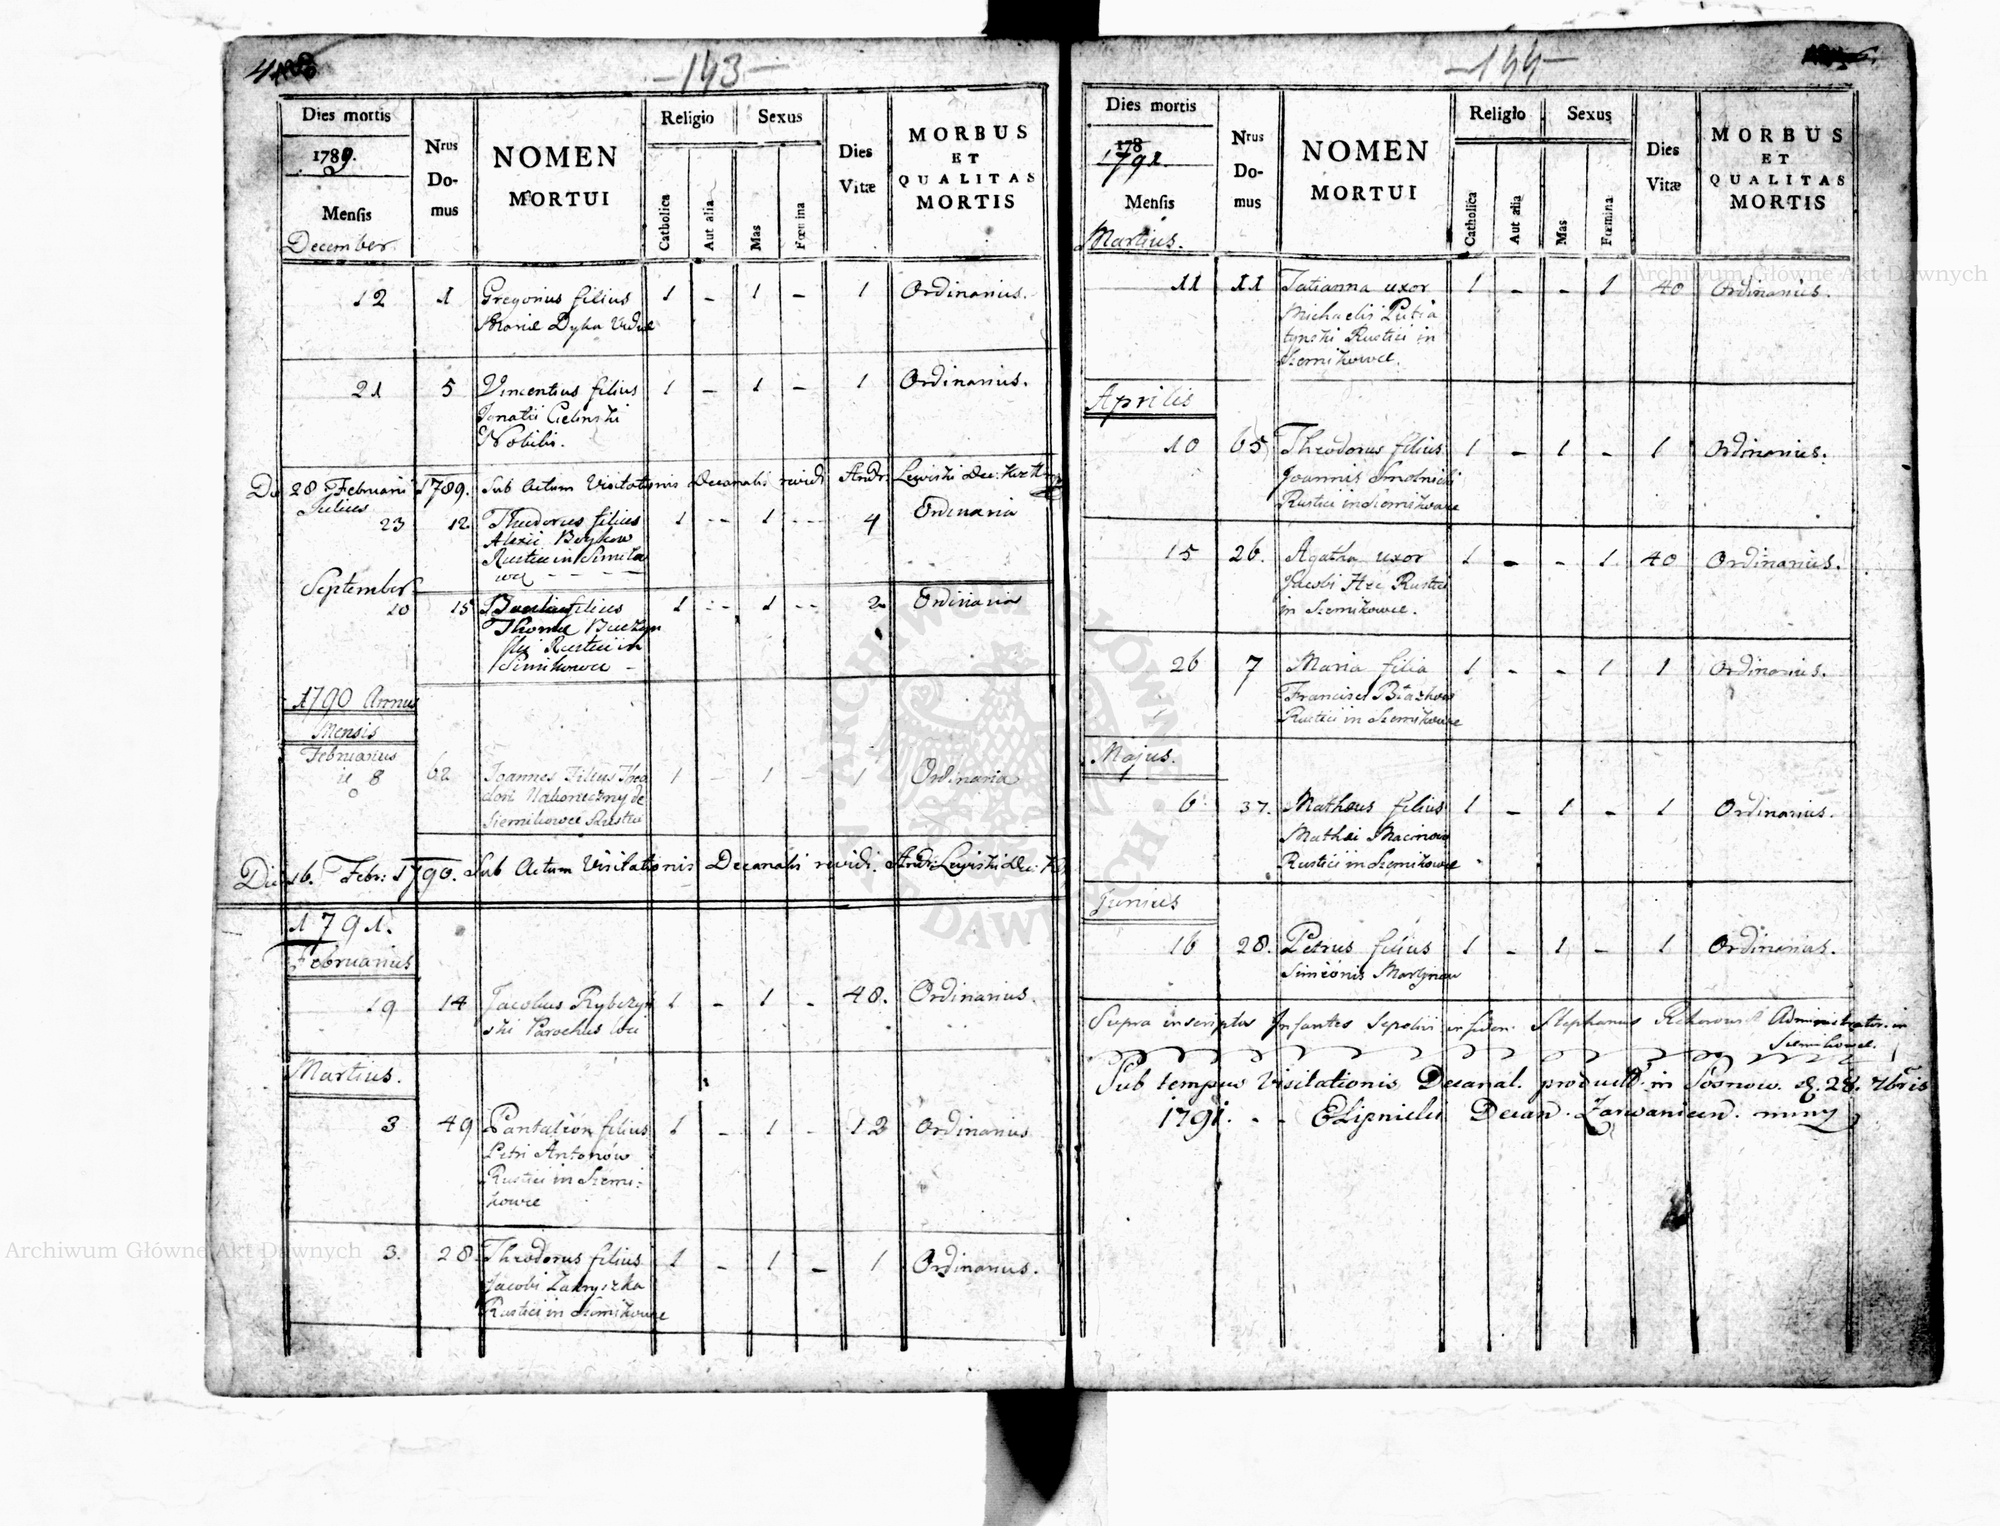 - 143 -
Dies mortis
1789.
Mensis
December.
Nrus
Do-
mus
NOMEN
MORTUI
Religio
Catholica
Aut alia
Sexus
Mas
Fœmina
Dies
Vitæ
MORBUS
ET
QUALITAS
MORTIS
12 1 Gregorius filius 1 - 1 - 1 Ordinarius.
Dyka
21 5 Vincentius filius 1 - 1 - 1 Ordinarius.
Ignatii Cielinski
Nobilis.
Die 28 Februarii 1789. Sub Actum Visitationis Decanalis revidi Andr: Lewiski Dec:
Julius
23 12 Theodorus filius 1 - - 1 - - 4 Ordinaria
Alexii
Rustici in Simiko
wce
September
10 15 filius 1 - - 1 - - 2 Ordinaria
Thomæ Buczyn
ski Rustici in
Simikowce
1790 Annus
Mensis
Februarius
8 62 Joannes Filius Theo 1 - 1 - 1 Ordinaria
dori Nakoneczny de
Siemikowce Rustici
Die 16. Febr: 1790. Sub Actum Visitationis Decanalis revidi. Andr: Lewiski Dec:
1791.
Februarius
19 14 Jacobus Rybczyń 1 - 1 - 48. Ordinarius.
ski Parochus loci
Martius.
3 49 Pantalion filius 1 - 1 - 12 Ordinarius
Petri Antonów
Rustici in Siemi-
kowce
3. 28 Theodorus filius 1 - 1 - 1 Ordinarius.
Jacobi Zakryszka
Rustici in Siemikowce
- 144 -
Dies mortis
178
1791.
Mensis
Martius.
Nrus
Do-
mus
NOMEN
MORTUI
Religio
Catholica
Aut alia
Sexus
Mas
Fœmina
Dies
Vitæ
MORBUS
ET
QUALITAS
MORTIS
11 11 Tatianna uxor 1 - - 1 40 Ordinarius.
Michaelis Putia
tynski Rustici in
Siemikowce.
Aprilis
10 65 Theodorus filius 1 - 1 - 1 Ordinarius.
Joannis Smolnicki
Rustici in Siemikowce
15 26. Agatha uxor 1 - - 1. 40 Ordinarius.
Jacobi Rustici
in Siemikowce.
26 7 Maria filia 1 - - 1 1 Ordinarius.
Francisci Błazkow
Rustici in Siemikowce
Majus.
6 37. Matheus filius 1 - 1 - 1 Ordinarius.
Mathei
Rustici in Siemikowce
Junius
16 28. Petrus filius 1 - 1 - 1 Ordinarius.
Simeonis Martynow
Supra inscriptos Infantes sepelii Stephanus Administrator in
Siemikowce.
Sub tempus Visitationis Decanal. product. in Sosnow. d. 28. 7bris
1791. - - Decan. Zarwanicen.
Archiwum Główne Akt Dawnych
Archiwum Główne Akt Dawnych
ARCHIWUM GŁÓWNE AKT DAWNYCH